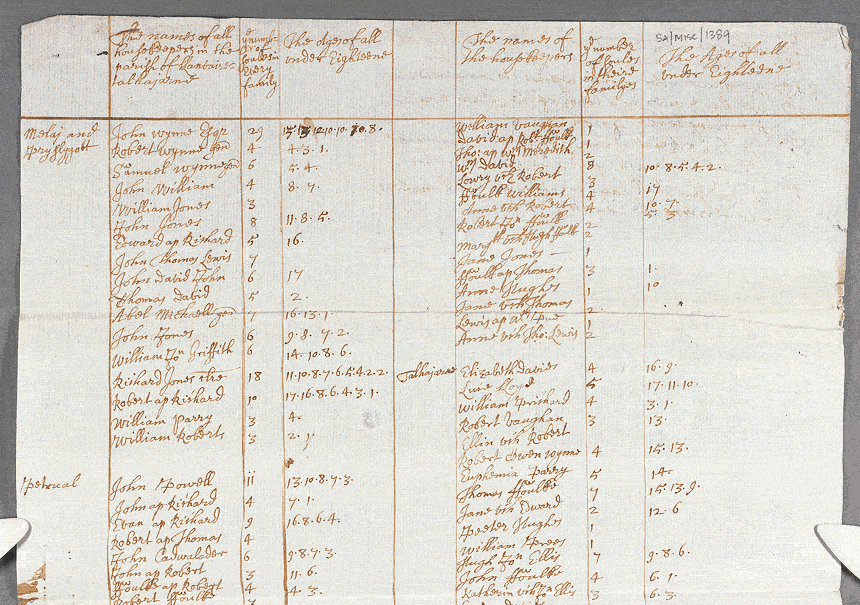 SA/MISC/1389
The names of all
housekeepers in the
parish of Llanvaire
talhajarne
number
of
soules in
Every
family
The Ages of all
under Eighteene
Melaj and
John Wynne Esqr 29
Robert Wynne gen 4 4.3.1.
Samuel Wynne gen 6 5.4.
John William 4 8.7.
William Jones 3
John Jones 8 11.8.5.
Edward ap Richard 5 16.
John Thomas Lewis 7
John David John 6 17
Thomas David 5 2.
Abel Michaell gen 7 16.13.1.
John Jones 6 9.8.7.2.
William Jon Griffith 6 14.10.8.6.
Richard Jones 18 11.10.8.7.6.5.4.2.2.
Robert ap Richard 10 17.16.8.6.4.3.1.
William Parry 3 4.
William Roberts 3 2.1.
Petrual
John Powell 11 13.10.8.7.3.
John ap Richard 4 7.1.
Evan ap Richard 9 16.8.6.4.
Robert ap Thomas 4
John Cadwalader 6 9.8.7.3.
John ap Robert 3 11.6.
ffoulke ap Robert 4 4.3.
Robert ffoulke
The names of
the housekeepers
number
of soules
in theire
familyes
The Ages of all
under Eighteene
William Vaughan 1
David ap Robt ffoulke 1
Tho: ap Wm Meredith 2
Wm David 8 10.8.5.4.2.
Lowry vch Robert 3
ffoulk Williams 4 17
Anne vch Robert 4 10.7.
Robert Jon ffoulk 2 5.3
Margt vch Hugh ffoulk 2
Jane Jones 1
ffoulk ap Thomas 3 1.
Anne Hughes 1 10
Jane vch Thomas 2
Lewis ap 1
Anne vch Tho: Lewis 2
Talhajarne
Elizabeth Davies 4 16.9.
Luce Loyd 5 17.11.10.
William Prichard 4 3.1.
Robert Vaughan 3 13.
Ellin vch Robert
Robert Owen Wynne 4 15.13.
Euphemia Parry 5 14.
Thomas ffoulke 7 15.13.9.
Jane vch Edward 2 12.6
Peeter Hughes 1
William Prees 1
Hugh Jon Ellis 7 9.8.6.
John ffoulke 4 6.1.
Katherin vch Jon Ellis 3 6.3.